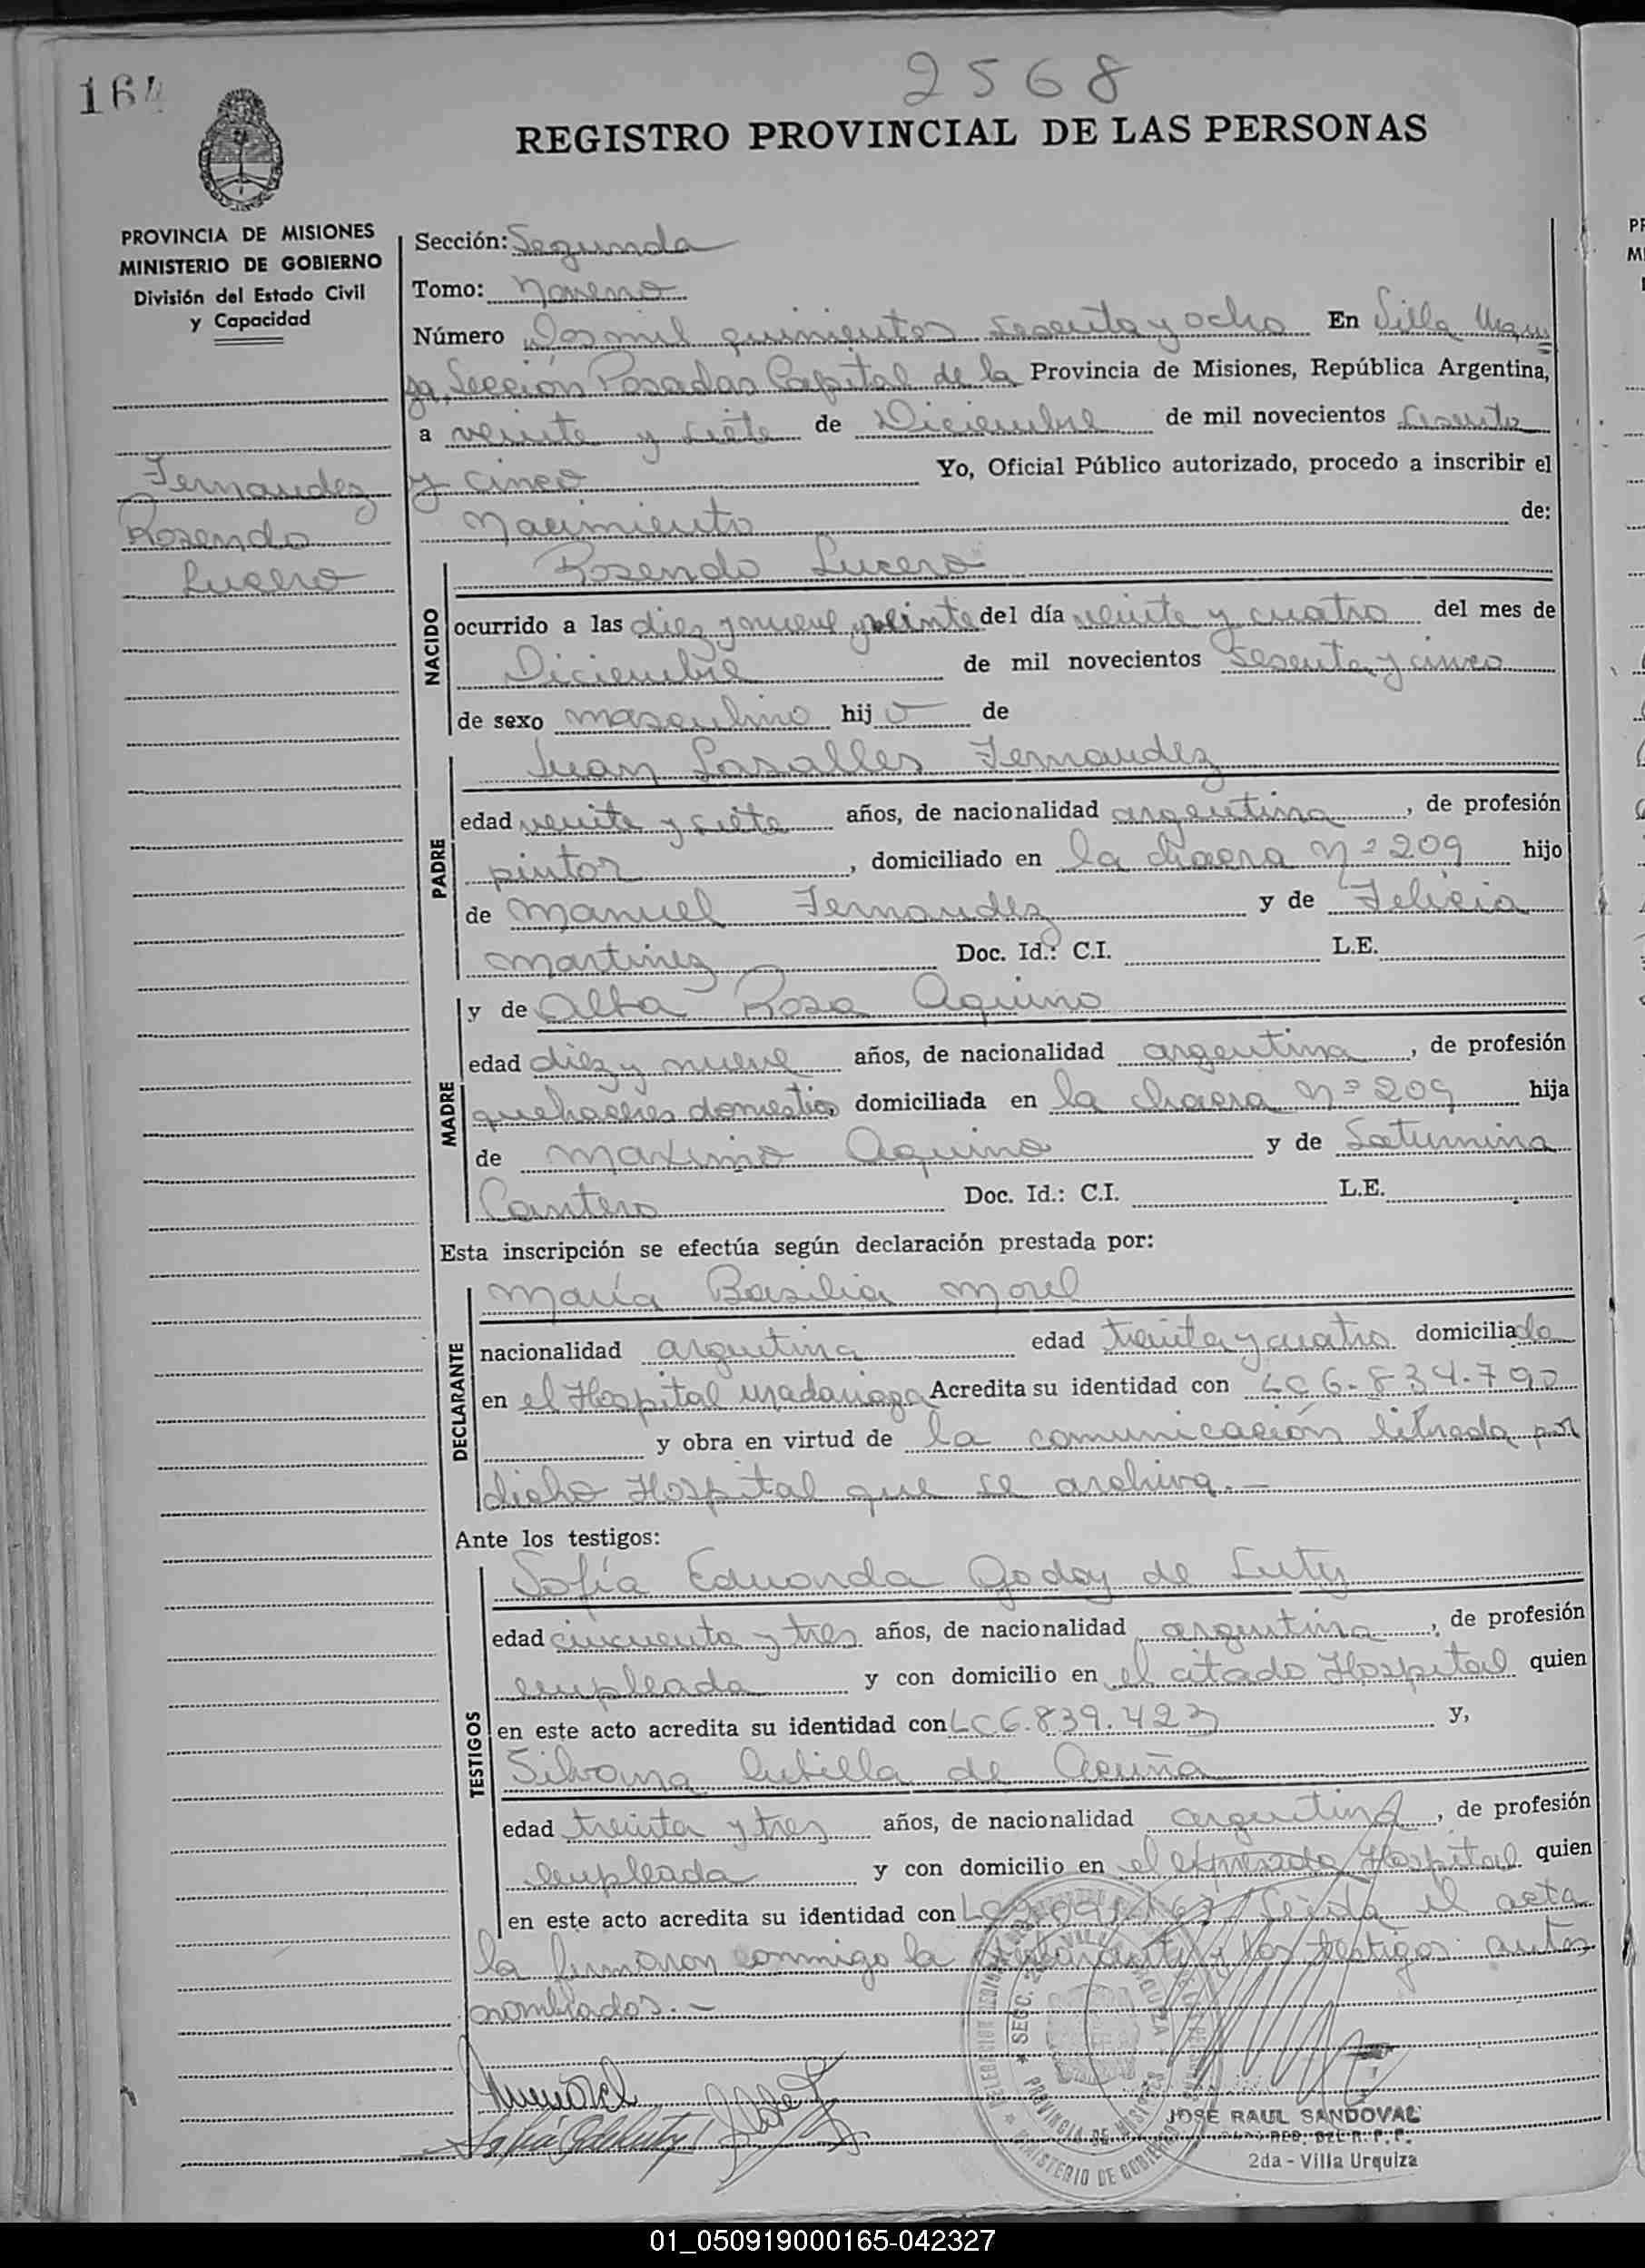 2568
164
REGISTRO PROVINCIAL DE LAS PERSONAS
PROVINCIA DE MISIONES
MINISTERIO DE GOBIERNO
División del Estado Civil
y Capacidad
Fernandez
Rosendo
Lucero
Sección: Segunda
Tomo: Noveno
Número Dos mil quinientos sesenta y ocho En Villa Urqui
za, Sección Posadas Capital de la Provincia de Misiones, República Argentina,
a veinte y siete de Diciembre de mil novecientos sesenta
y cinco Yo, Oficial Público autorizado, procedo a inscribir el
Nacimiento de:
NACIDO
Rosendo Lucero
ocurrido a las diez y nueve y veinte del día veinte y cuatro del mes de
Diciembre de mil novecientos sesenta y cinco
de sexo masculino hijo de
PADRE
Juan Lasalles Fernandez
edad veinte y siete años, de nacionalidad argentina, de profesión
pintor, domiciliado en la chacra Nº 209 hijo
de Manuel Fernandez y de Felicia
Martinez Doc. Id.: C.I. L.E.
MADRE
y de Alba Rosa Aquino
edad diez y nueve años, de nacionalidad argentina, de profesión
quehaceres domestico, domiciliada en la chacra Nº 209 hija
de Maximo Aquino y de Saturnina
Cantero Doc. Id.: C.I. L.E.
Esta inscripción se efectúa según declaración prestada por:
DECLARANTE
María Basilia Morel
nacionalidad argentina edad treinta y cuatro domiciliada
en el Hospital Madariaga Acredita su identidad con LC 6.834.790
y obra en virtud de la comunicación librada por
dicho Hospital que se archiva.-
Ante los testigos:
TESTIGOS
Sofía Eduarda Godoy de Luty
edad cincuenta y tres años, de nacionalidad argentina, de profesión
empleada y con domicilio en el citado Hospital quien
en este acto acredita su identidad con LC 6.839.423 y,
Silvana de Acuña
edad treinta y tres años, de nacionalidad argentina, de profesión
empleada y con domicilio en el expresado Hospital quien
en este acto acredita su identidad con Leída el acta
la firmaron conmigo la declarante y los testigos antes
nombrados.-
JOSE RAUL SANDOVAL
2da - Villa Urquiza
PROVINCIA DE MISIONES
MINISTERIO DE GOBIERNO
01_050919000165-042327